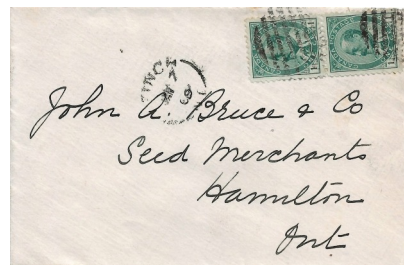 John A Bruce & Co
Seed Merchants
Hamilton
Ont